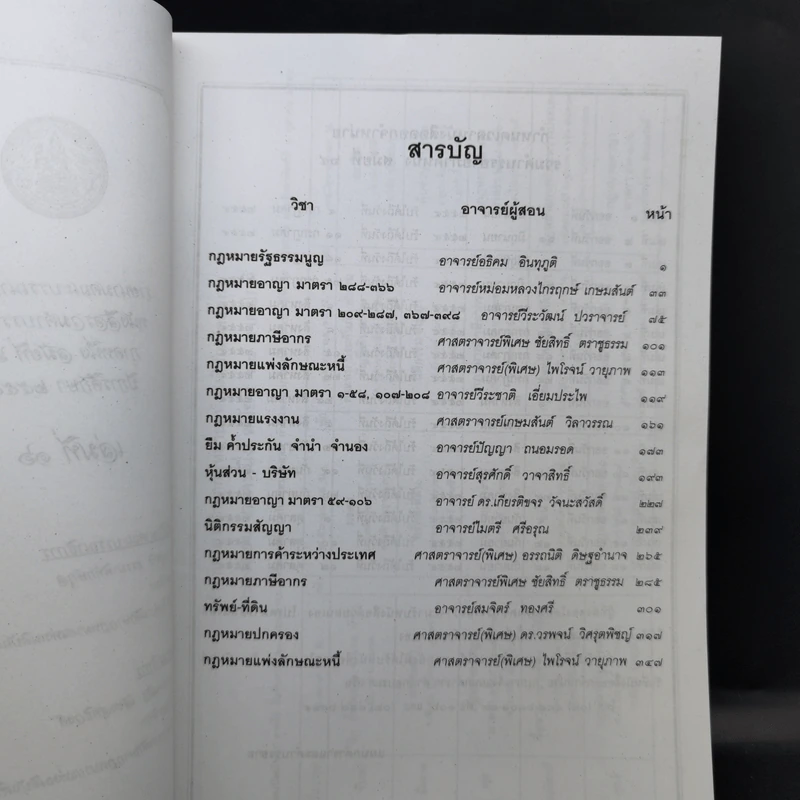 สารบัญ
วิชา อาจารย์ผู้สอน หน้า
กฎหมายรัฐธรรมนูญ อาจารย์อธิคม อินทุภูติ ๑
กฎหมายอาญา มาตรา ๒๘๘-๓๖๖ อาจารย์หม่อมหลวงไกรฤกษ์ เกษมสันต์ ๓๓
กฎหมายอาญา มาตรา ๒๐๙-๒๘๗, ๓๖๗-๓๙๘ อาจารย์วีระวัฒน์ ปวราจารย์ ๗๕
กฎหมายภาษีอากร ศาสตราจารย์พิเศษ ชัยสิทธิ์ ตราชูธรรม ๑๐๑
กฎหมายแพ่งลักษณะหนี้ ศาสตราจารย์(พิเศษ) ไพโรจน์ วายุภาพ ๑๑๓
กฎหมายอาญา มาตรา ๑-๕๘, ๑๐๗-๒๐๘ อาจารย์วีระชาติ เอี่ยมประไพ ๑๑๙
กฎหมายแรงงาน ศาสตราจารย์เกษมสันต์ วิลาวรรณ ๑๖๑
ยืม ค้ำประกัน จำนำ จำนอง อาจารย์ปัญญา ถนอมรอด ๑๗๓
หุ้นส่วน - บริษัท อาจารย์สุรศักดิ์ วาจาสิทธิ์ ๑๙๓
กฎหมายอาญา มาตรา ๕๙-๑๐๖ อาจารย์ ดร.เกียรติขจร วัจนะสวัสดิ์ ๒๒๗
นิติกรรมสัญญา อาจารย์ไมตรี ศรีอรุณ ๒๓๙
กฎหมายการค้าระหว่างประเทศ ศาสตราจารย์(พิเศษ) อรรถนิติ ดิษฐอำนาจ ๒๖๕
กฎหมายภาษีอากร ศาสตราจารย์พิเศษ ชัยสิทธิ์ ตราชูธรรม ๒๘๕
ทรัพย์-ที่ดิน อาจารย์สมจิตร์ ทองศรี ๓๐๑
กฎหมายปกครอง ศาสตราจารย์(พิเศษ) ดร.วรพจน์ วิศรุตพิชญ์ ๓๑๗
กฎหมายแพ่งลักษณะหนี้ ศาสตราจารย์(พิเศษ) ไพโรจน์ วายุภาพ ๓๔๗